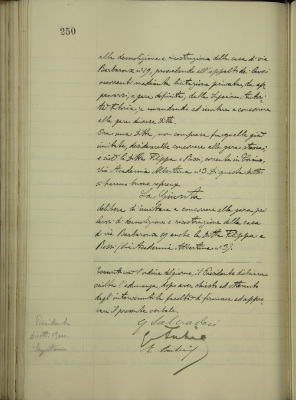 250
alla demolizione e ricostruzione della casa di via
Barbaroux n° 19, provvedendo all'appalto dei lavori
occorrenti mediante licitazione privata, da
a gara definita, dalla Superiore
tutoria, e mandando ad invitare a concorrere
alla gara diverse Ditte.
Ora una Ditta, non compresa fra quelle già
invitate, desiderando concorrere alla gara stessa;
è la Ditta Filippa e Rossi, corrente in Torino,
Via Accademia Albertina n° 3. Di questa ditta
si hanno buone referenze
La Giunta
delibera di invitare a concorrere alla gara pei
lavori di demolizione e ricostruzione della casa
di via Barbaroux 19 anche la Ditta Filippa e
Rossi (via Accademia Albertina n° 3).
Esaurito così l'ordine del giorno, il Presidente dichiara
sciolta l'adunanza, dopo aver chiesto ed ottenuto
dagli intervenuti la facoltà di firmare ed appro-
vare il presente verbale.
G Salvadori
Presidente
Segretario